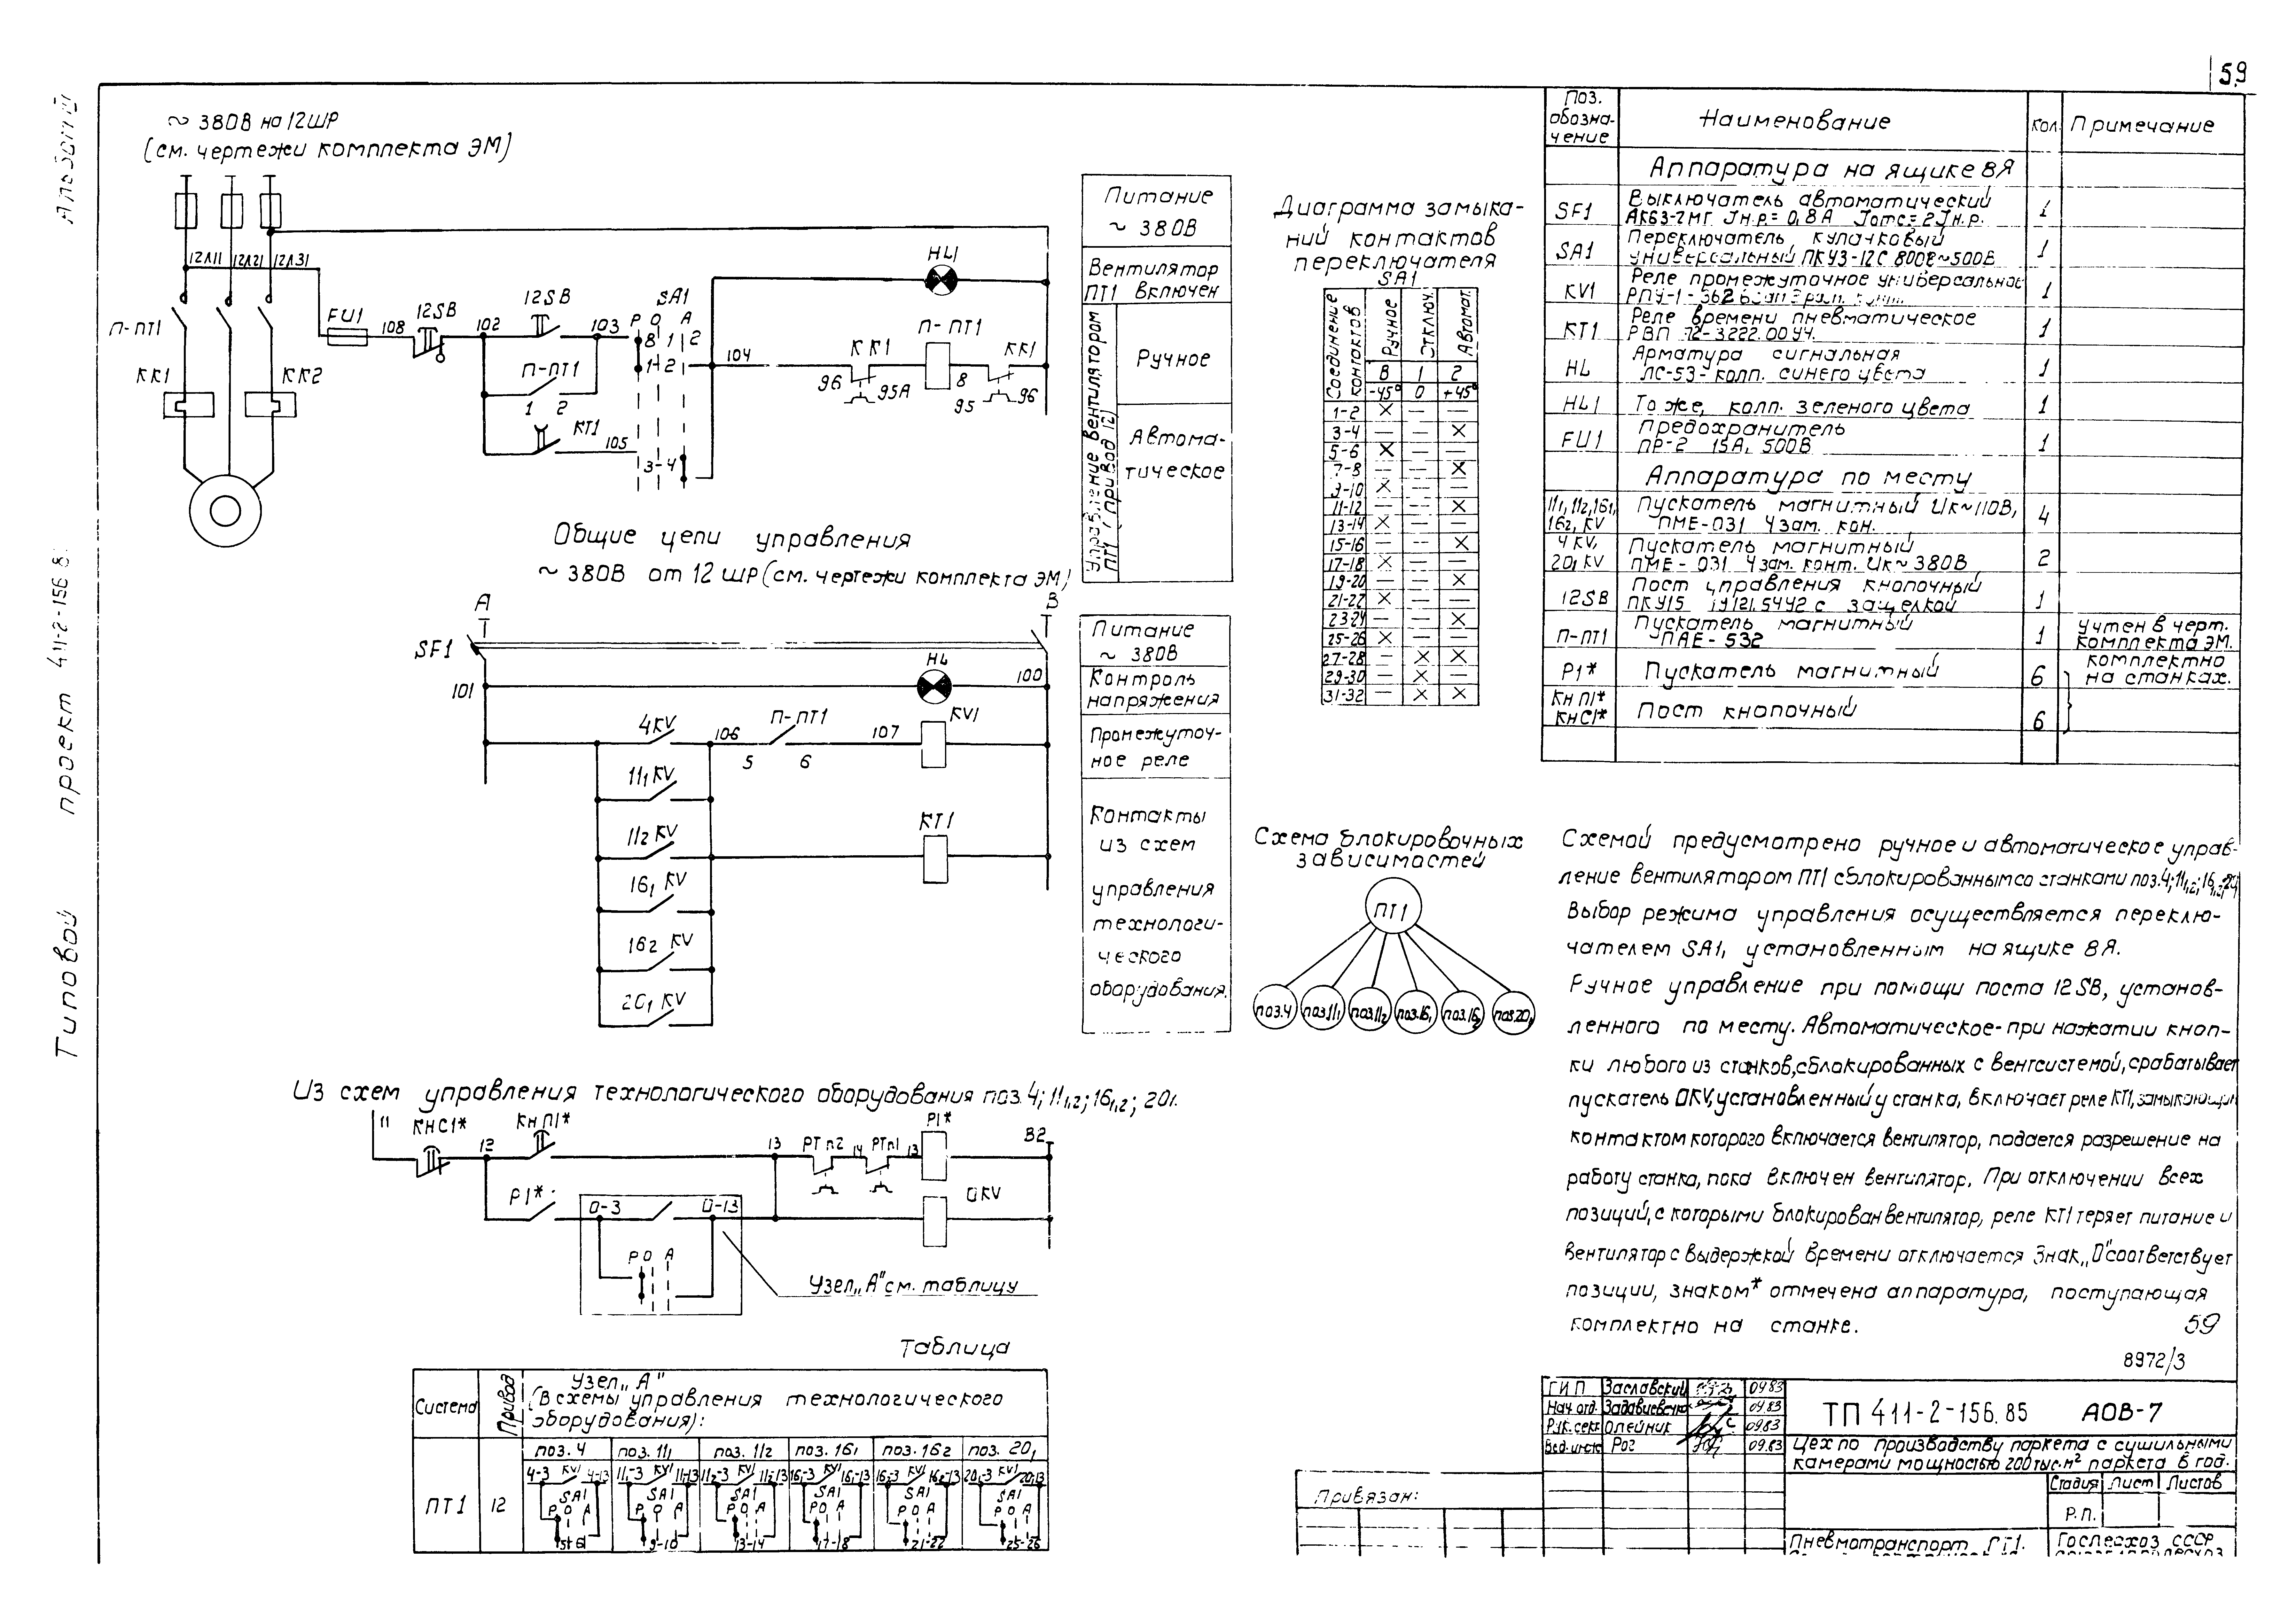 59
Альбом
Типовой проект 411-2-156.8
~ 380В на 12ШР
(см. чертежи комплекта ЭМ)
12Л11 12Л21 12Л31
П-ПТ1
КК1
КК2
FU1
108
12SB
102
12SB
103
П-ПТ1
1 2
КТ1
105
SA1
Р О А
8 1 2
1-2
3-4
104
HL1
КК1
96
95А
П-ПТ1
8
КК1
95
96
Питание
~ 380В
Вентилятор
ПТ1 включен
Управление вентилятором
ПТ1 (привод 12)
Ручное
Автома-
тическое
Общие цепи управления
~ 380В от 12 ШР (см. чертежи комплекта ЭМ)
А
В
SF1
101
HL
100
4KV
106
П-ПТ1
5 6
107
KV1
11₁ KV
11₂ KV
КТ1
16₁ KV
16₂ KV
20₁ KV
Питание
~ 380В
Контроль
напряжения
Промежуточ-
ное реле
Контакты
из схем
управления
технологи-
ческого
оборудования.
Диаграмма замыка-
ний контактов
переключателя
SA1
Соединение контактов
Ручное
Отключ.
Автомат.
В 1 2
-45° 0 +45°
1-2 × — —
3-4 — — ×
5-6 × — —
7-8 — — ×
9-10 × — —
11-12 — — ×
13-14 × — —
15-16 — — ×
17-18 × — —
19-20 — — ×
21-22 × — —
23-24 — — ×
25-26 × — —
27-28 — × ×
29-30 — × —
31-32 — × ×
Схема блокировочных
зависимостей
ПТ1
поз.4 поз.11₁ поз.11₂ поз.16₁ поз.16₂ поз.20₁
Поз. обозна-чение Наименование Кол. Примечание
Аппаратура на ящике 8Я
SF1 Выключатель автоматический
АК63-2МГ Jн.р.= 0,8А Jотс=2Jн.р. 1
SA1 Переключатель кулачковый
универсальный ПКУ3-12С 8008 ~500В 1
KV1 Реле промежуточное универсальное
РПУ-1-362 1
КТ1 Реле времени пневматическое
РВП 72-3222.00У4. 1
HL Арматура сигнальная
ЛС-53-колп. синего цвета 1
HL1 То же, колп. зеленого цвета 1
FU1 Предохранитель
ПР-2 15А, 500В 1
Аппаратура по месту
11₁, 11₂, 16₁, Пускатель магнитный Uк~110В,
16₂, KV ПМЕ-031 4 зам. кон. 4
4 KV, Пускатель магнитный
20₁ KV ПМЕ-031 4 зам. конт. Uк~380В 2
12SB Пост управления кнопочный
ПКУ15 19.121.54У2 с защелкой 1
П-ПТ1 Пускатель магнитный
ПАЕ-532 1 учтен в черт. комплекта ЭМ.
Р1* Пускатель магнитный 6 комплектно на станках.
КНП1*
КНС1* Пост кнопочный 6
Схемой предусмотрено ручное и автоматическое управ-
ление вентилятором ПТ1 сблокированным со станками поз.4; 11₁,₂; 16₁,₂; 20₁
Выбор режима управления осуществляется переклю-
чателем SA1, установленным на ящике 8Я.
Ручное управление при помощи поста 12SB, установ-
ленного по месту. Автоматическое-при нажатии кноп-
ки любого из станков, сблокированных с вентсистемой, срабатывает
пускатель 0KV, установленный у станка, включает реле КТ1, замыкающим
контактом которого включается вентилятор, подается разрешение на
работу станка, пока включен вентилятор. При отключении всех
позиций, с которыми блокирован вентилятор, реле КТ1 теряет питание и
вентилятор с выдержкой времени отключается Знак „0" соответствует
позиции, знаком* отмечена аппаратура, поступающая
комплектно на станке.
59
8972/3
Из схем управления технологического оборудования поз.4; 11₁,₂; 16₁,₂; 20₁.
11
КНС1*
12
КНП1*
13
РТп2
14
РТп1
13
Р1*
В2
Р1*
0-3
0-13
0KV
Р О А
Узел „А" см. таблицу
Таблица
Система
Привод
Узел „А"
(В схемы управления технологического
оборудования):
поз. 4 поз. 11₁ поз. 11₂ поз. 16₁ поз. 16₂ поз. 20₁
ПТ1 12
4-3 KV1 4-13 11₁-3 KV1 11₁-13 11₂-3 KV1 11₂-13 16₁-3 KV1 16₁-13 16₂-3 KV1 16₂-13 20₁-3 KV1 20₁-13
SA1 SA1 SA1 SA1 SA1 SA1
Р О А Р О А Р О А Р О А Р О А Р О А
5-6 9-10 13-14 17-18 21-22 25-26
Привязан:
ГИП Заславский 09.83
Нач. отд. 09.83
Рук. сект. Олейник 09.83
Вед. инж. Рог 09.83
ТП 411-2-156.85 АОВ-7
Цех по производству паркета с сушильными
камерами мощностью 200 тыс. м² паркета в год.
Стадия Лист Листов
Р.П.
Пневмотранспорт ПТ1.
Гослесхоз СССР